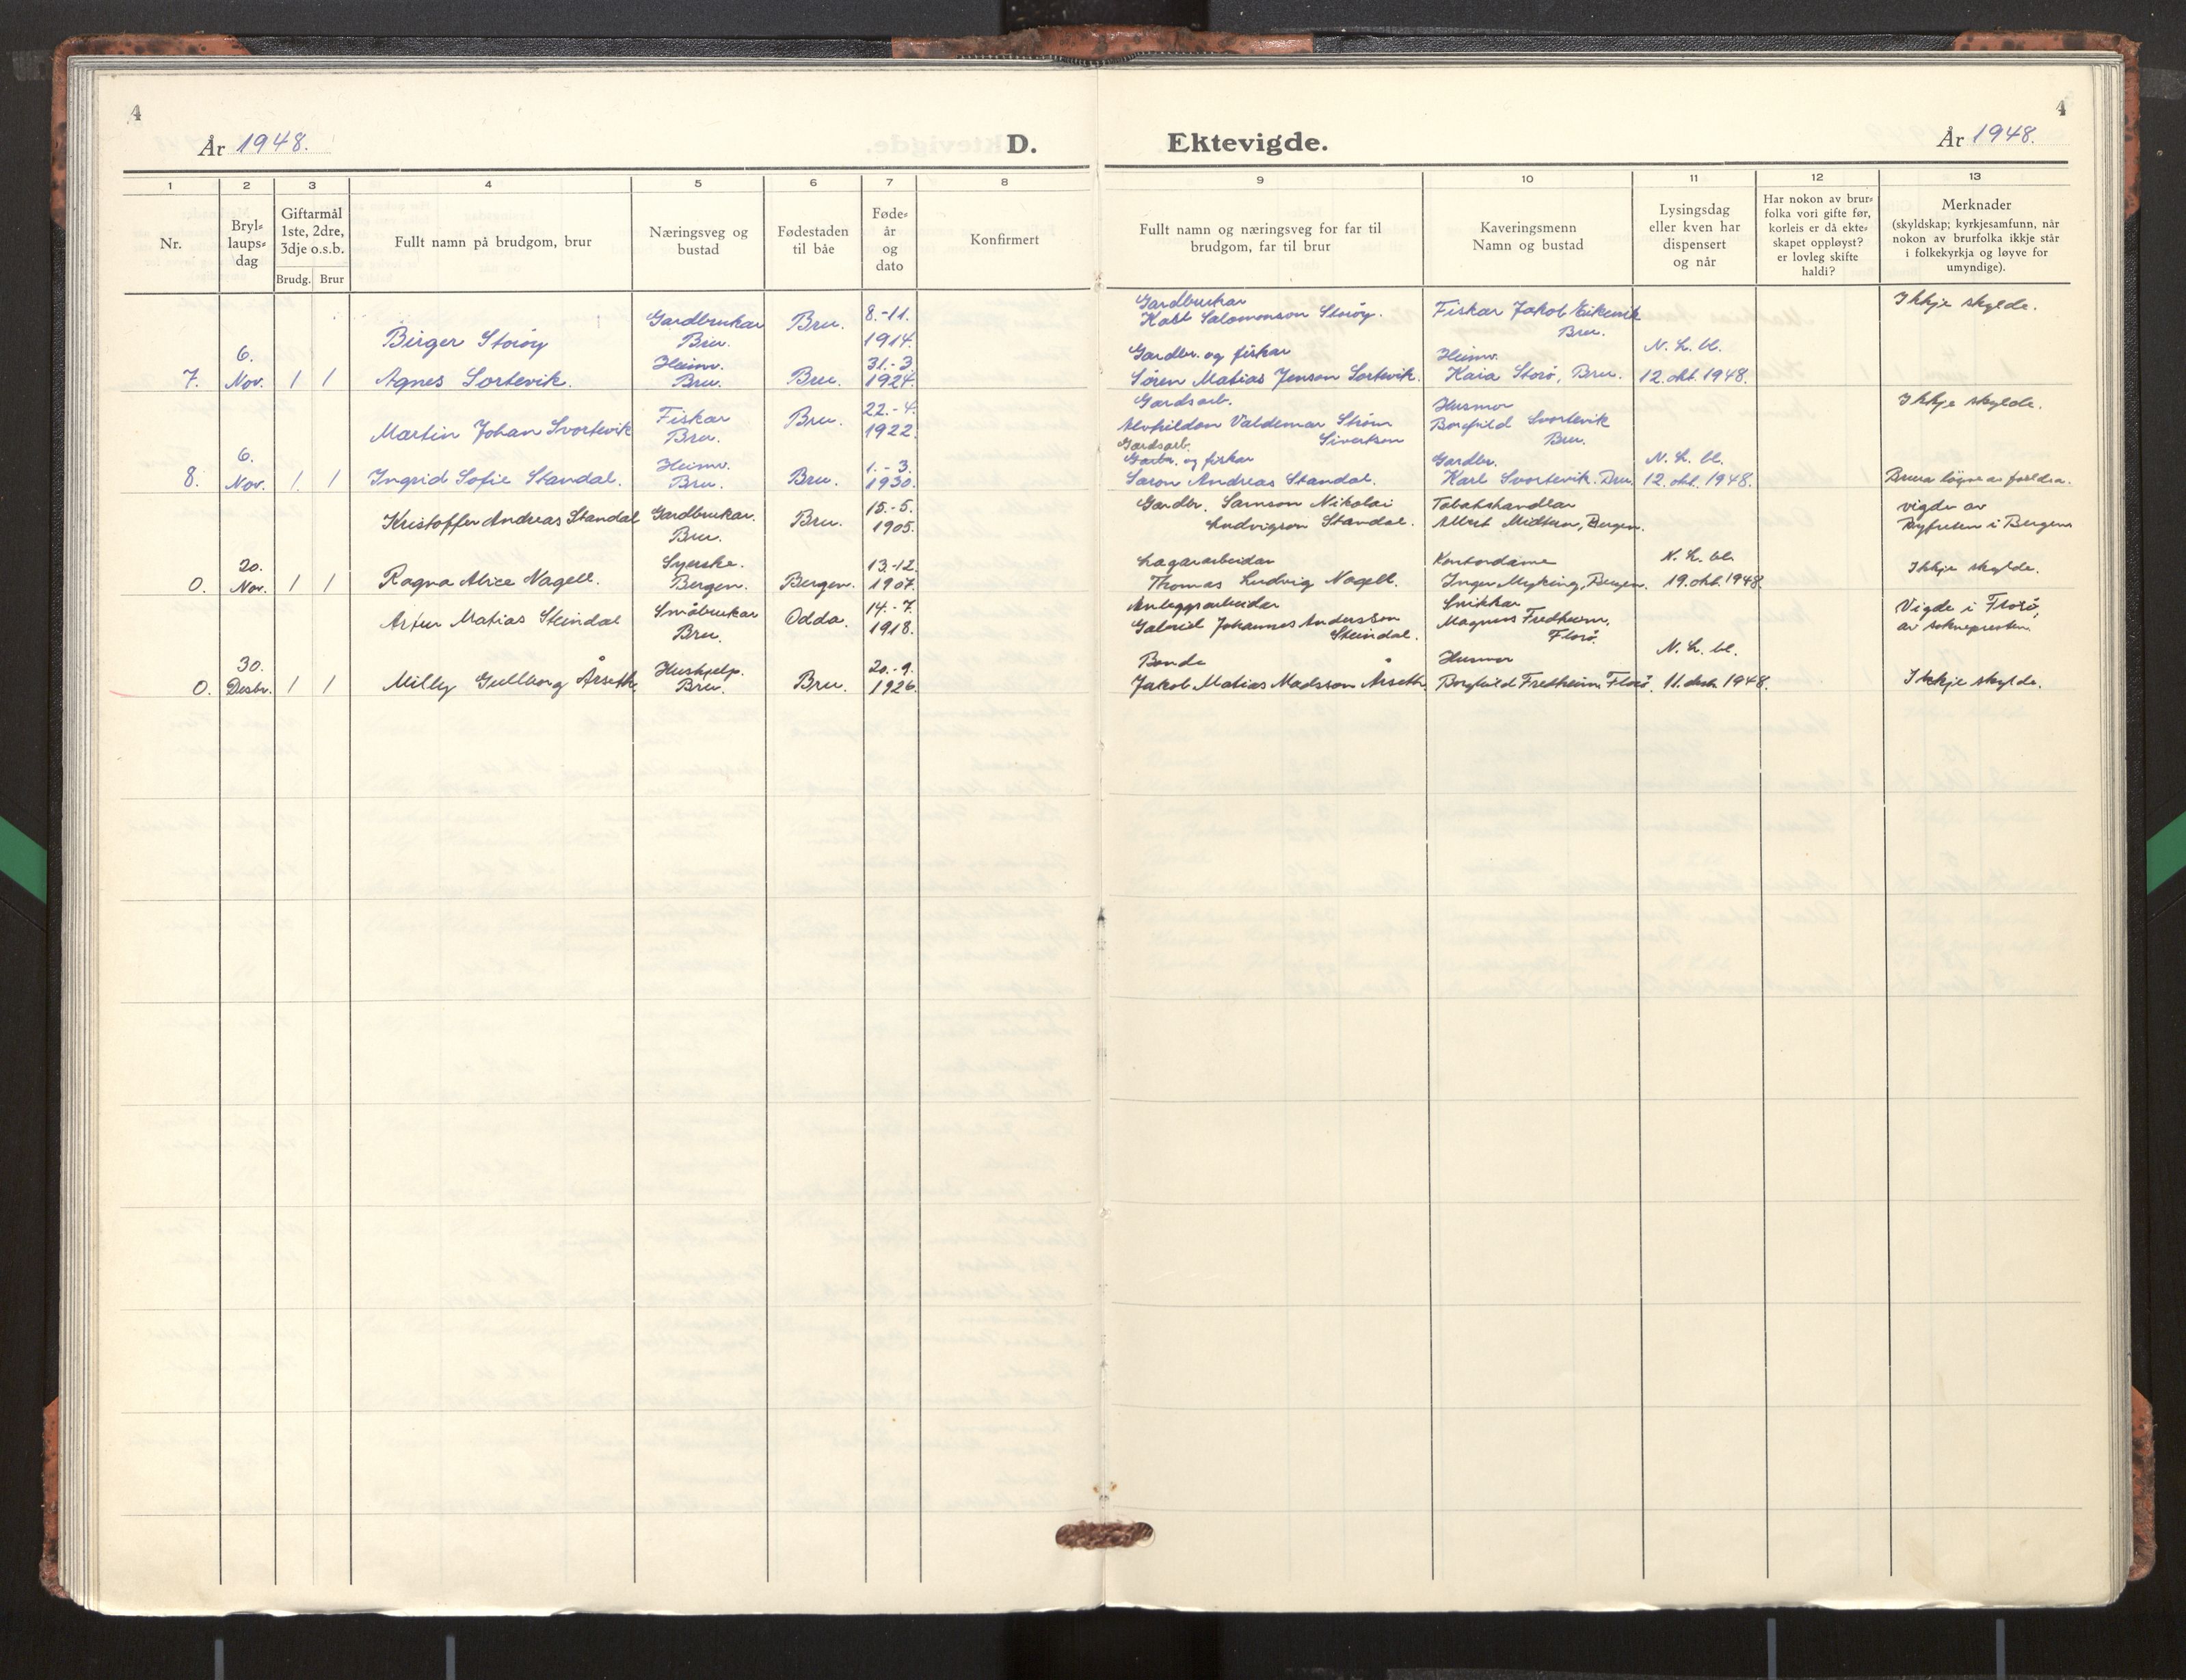 4
4
År 1948.
D. Ektevigde.
År 1948.
1 2 3 4 5 6 7 8 9 10 11 12 13
Nr.
Bryl=
laups=
dag
Giftarmål
1ste, 2dre,
3dje o.s.b.
Brudg. Brur
Fullt namn på brudgom, brur
Næringsveg og
bustad
Fødestaden
til båe
Føde=
år
og
dato
Konfirmert
Fullt namn og næringsveg for far til
brudgom, far til brur
Kaveringsmenn
Namn og bustad
Lysingsdag
eller kven har
dispensert
og når
Har nokon av brur=
folka vori gifte før,
korleis er då ekte=
skapet oppløyst?
er lovleg skifte
haldi?
Merknader
(skyldskap; kyrkjesamfunn, når
nokon av brurfolka ikkje står
i folkekyrkja og løyve for
umyndige).
7.
6.
Nov.
1 1
Birger Storøy
Agnes Sortevik.
Gardbrukar
Bru.
Heimv.
Bru.
Bru.
Bru.
8.-11.
1914.
31.-3.
1924.
Gardbrukar
Karl Salomonson Storøy.
Gardbr. og fiskar
Søren Matias Jenson Sortevik.
Fiskar Jakob Eikevik
Bru.
Heimv.
Kaia Storø, Bru.
N. L. bl.
12. okt. 1948.
Ikkje skylde.
8.
6.
Nov.
1. 1
Martin Johan Svortevik
Ingrid Sofie Standal.
Fiskar
Bru.
Heimv.
Bru.
Bru.
Bru.
22.-4.
1922.
1.-3.
1930.
Gardsarb.
Valdemar Strøm
Sivertson
Gardsarb.
Gardbr. og fiskar
Saron Andreas Standal.
Husmor
Borghild Svortevik
Bru.
Gardbr.
Karl Svortevik. Bru.
N. L. bl.
12. okt. 1948.
Ikkje skylde.
Brura løyve av foreldra.
0.
20.
Nov.
1 1
Kristoffer Andreas Standal
Ragna Alice Nagell.
Gardbrukar.
Bru.
Syerske.
Bergen.
Bru.
Bergen.
15.-5.
1905.
13.-12.
1907.
Gardbr. Samson Nikolai
Ludvigson Standal.
Lagararbeidar
Thomas Ludvig Nagell.
Tobakshandlar
Albert Midttun, Bergen.
Kontordame
Inger Myking, Bergen.
N. L. bl.
19. okt. 1948.
vigde av
Byfuten i Bergen
Ikkje skylde.
0.
30.
Desbr.
1 1
Artur Matias Steindal
Milly Gullborg Årseth
Småbrukar
Bru.
Hushjelp.
Bru.
Odda.
Bru.
14.-7.
1918.
20.-9.
1926.
Anleggsarbeidar
Gabriel Johannes Andersson
Steindal.
Bonde
Jakob Matias Madsson Årseth
Snikkar
Magnus Fredheim,
Florø.
Husmor
Borghild Fredheim, Florø.
N. L. bl.
11. desb. 1948.
Vigde i Florø,
av soknepresten.
Ikkje skylde.